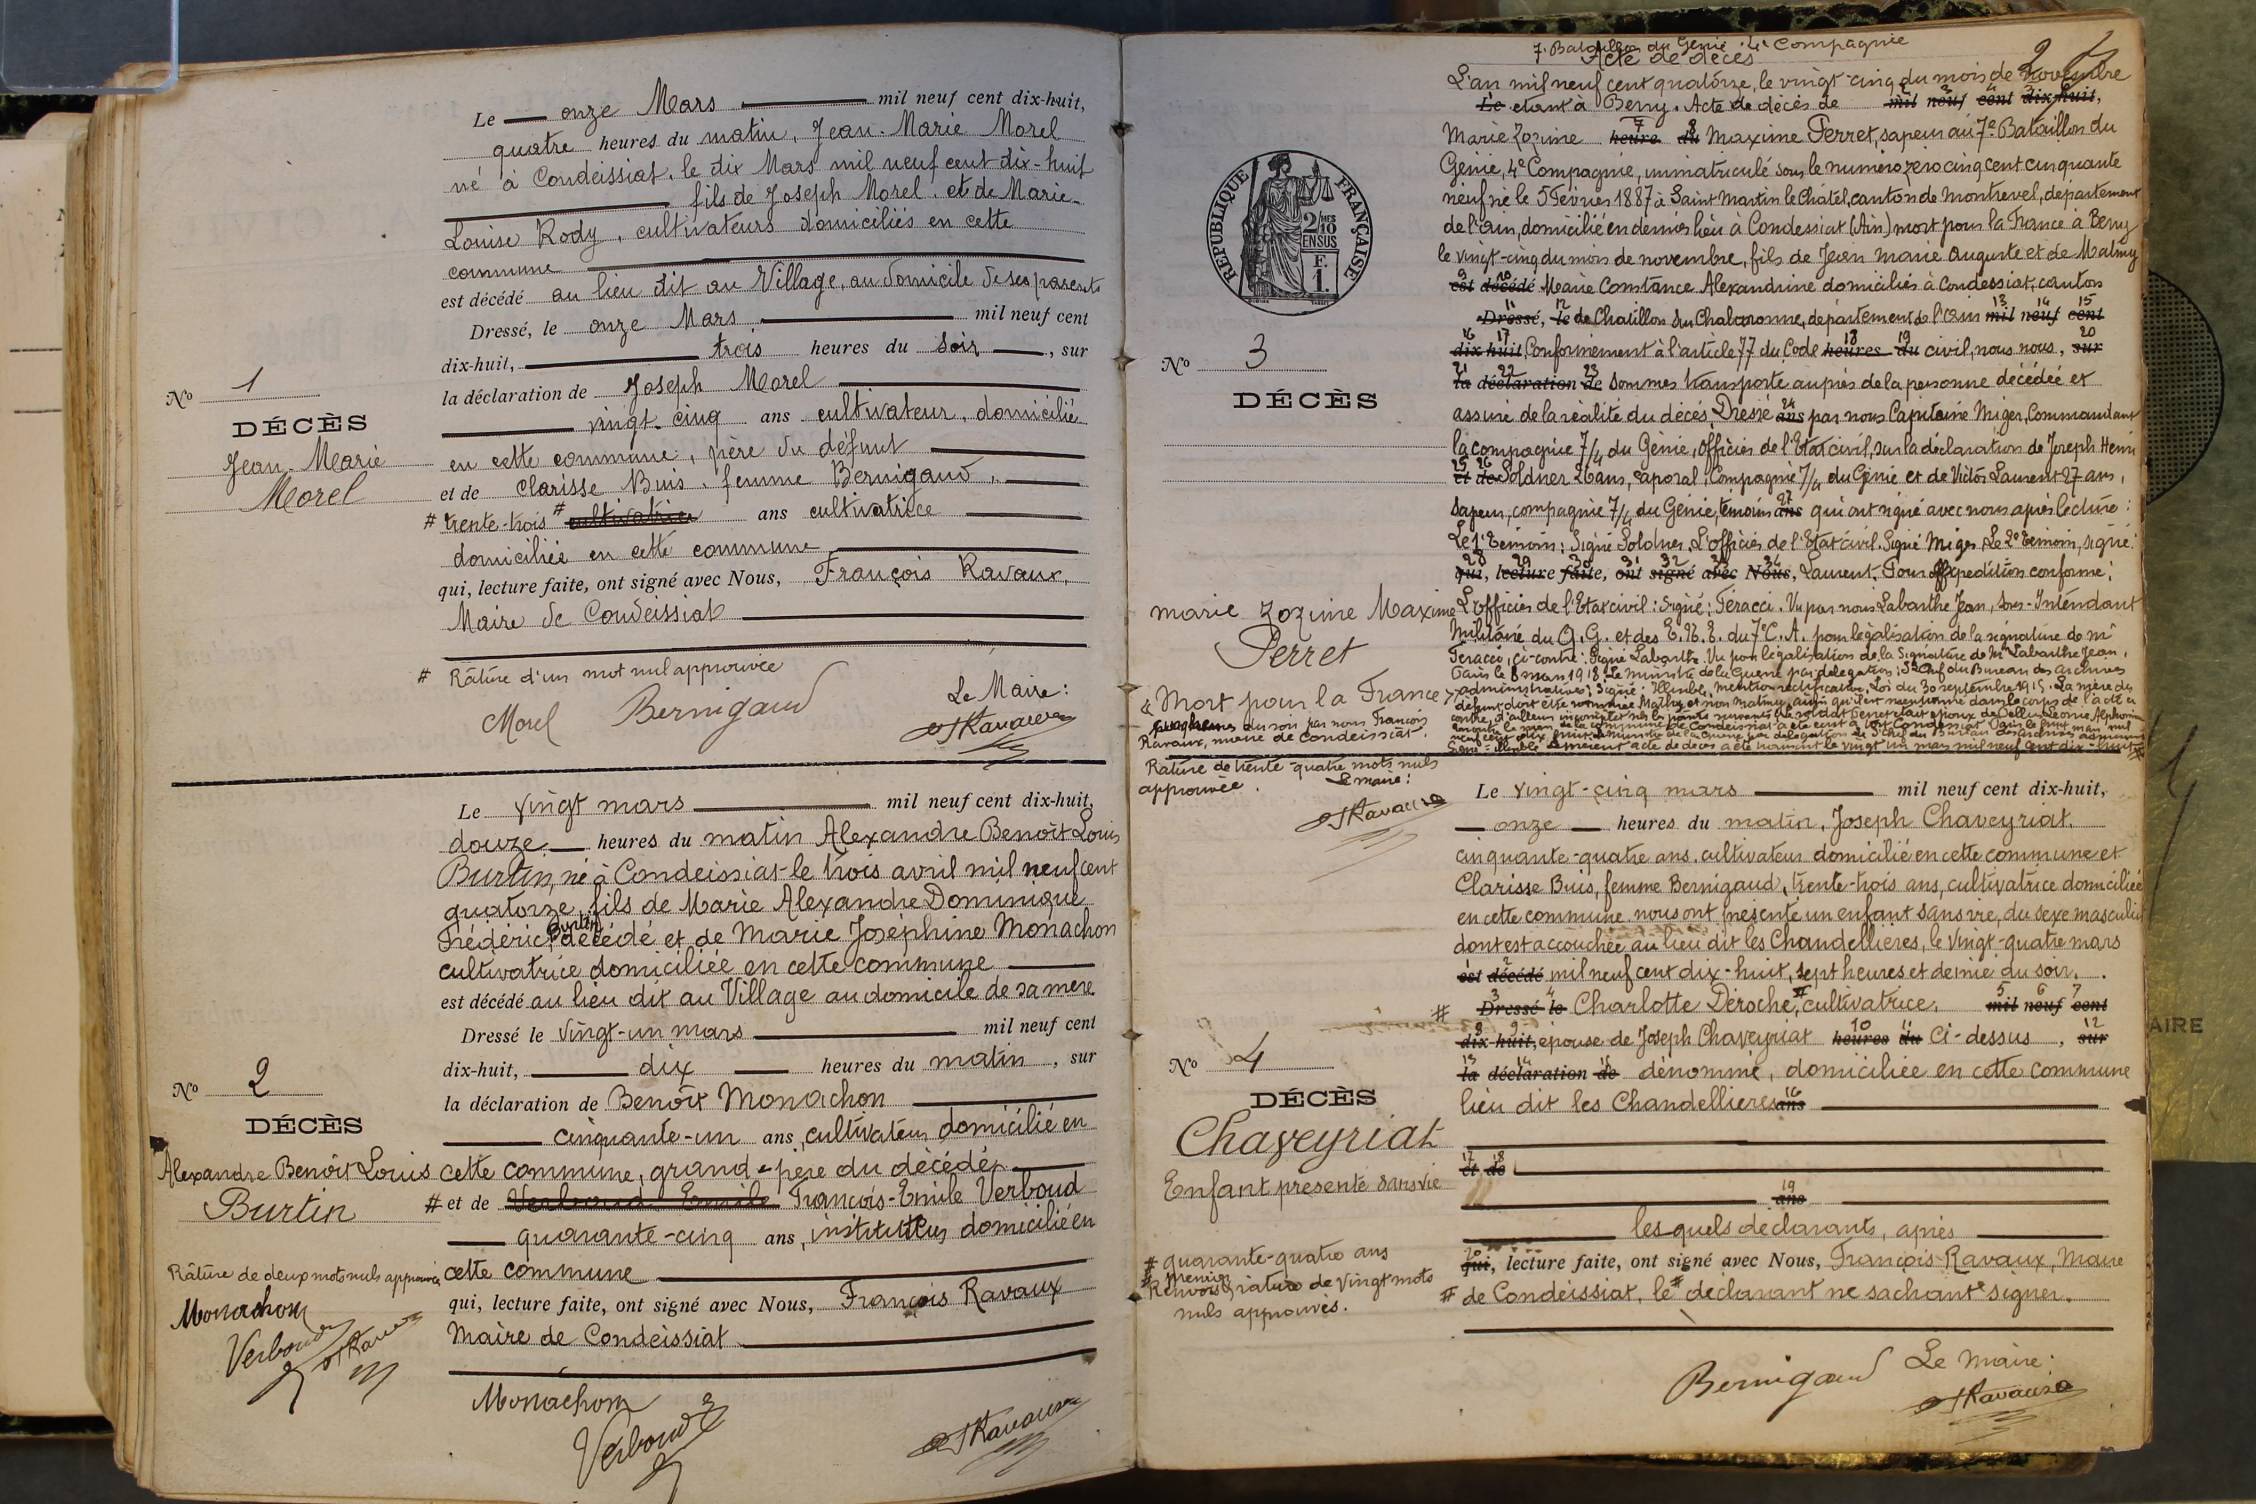 Le onze Mars mil neuf cent dix-huit,
quatre heures du matin, Jean-Marie Morel
né à Condeissiat, le dix Mars mil neuf cent dix-huit
fils de Joseph Morel et de Marie-
Louise Rody, cultivateurs domiciliés en cette
commune
est décédé au lieu dit au Village, au domicile de ses parents
Dressé, le onze Mars mil neuf cent
dix-huit, trois heures du soir, sur
la déclaration de Joseph Morel
vingt-cinq ans cultivateur, domicilié
en cette commune, père du défunt
et de Clarisse Buis, femme Bernigaud,
# trente-trois # cultivatrice ans cultivatrice
domiciliée en cette commune
qui, lecture faite, ont signé avec Nous, François Ravaux,
Maire de Condeissiat
# Râture d'un mot nul approuvée
Morel Bernigaud Le Maire:
Ravaux
No 1
DÉCÈS
Jean-Marie
Morel
Le vingt mars mil neuf cent dix-huit,
douze heures du matin Alexandre Benoît Louis
Burtin, né à Condeissiat le trois avril mil neuf cent
quatorze, fils de Marie Alexandre Dominique
Frédéric Burtin décédé et de Marie Joséphine Monachon
cultivatrice domiciliée en cette commune
est décédé au lieu dit au Village au domicile de sa mère
Dressé le vingt-un mars mil neuf cent
dix-huit, dix heures du matin, sur
la déclaration de Benoît Monachon
cinquante-un ans, cultivateur domicilié en
cette commune, grand-père du décédé,
# et de Verboud Emile François-Emile Verboud
quarante-cinq ans, instituteur domicilié en
cette commune
qui, lecture faite, ont signé avec Nous, François Ravaux
Maire de Condeissiat
Monachon
Verboud
Ravaux
No 2
DÉCÈS
Alexandre Benoît Louis
Burtin
Râture de deux mots nuls approuvée
Monachon
Verboud
Ravaux
7e Bataillon du Génie 4e Compagnie
Acte de décès
2
L'an mil neuf cent quatorze, le vingt-cinq du mois de novembre
Le étant à Berry. Acte de décès de mil neuf cent dix-huit,
Marie Zozime heure du Maxime Perret, sapeur au 7e Bataillon du
Génie, 4e Compagnie, immatriculé sous le numéro zéro cinq cent cinquante
neuf né le 5 Février 1887 à Saint Martin le Châtel, canton de Montrevel, département
de l'Ain, domicilié en dernier lieu à Condessiat (Ain) mort pour la France à Berry
le vingt-cinq du mois de novembre, fils de Jean Marie Auguste et de Malmy
est décédé Marie Constance Alexandrine domiciliés à Condessiat, canton
Dressé, le de Chatillon sur Chalaronne, département de l'Ain mil neuf cent
dix huit Conformément à l'article 77 du Code heures du civil, nous nous, sur
la déclaration de sommes transporté auprès de la personne décédée et
assuré de la réalité du décès. Dressé ans par nous Capitaine Miger, Commandant
la compagnie 7/4 du Génie, officier de l'Etat civil, sur la déclaration de Joseph Henri
et de Soldner 26 ans, caporal, Compagnie 7/4 du Génie et de Victor Laurent 27 ans,
sapeur, compagnie 7/4 du Génie, témoins ans qui ont signé avec nous après lecture:
Le 1er témoin: Signé Soldner. L'officier de l'Etat civil. Signé Miger. Le 2e témoin, signé:
qui, lecture faite, ont signé avec Nous, Laurent. Pour expédition conforme:
L'officier de l'Etat civil: Signé: Feracci. Vu par nous Labarthe Jean, Sous-Intendant
Militaire du Q.G. et des E.N.E. du 7e C.A. pour légalisation de la signature de Mr
Feracci, ci-contre. Signé Labarthe. Vu pour légalisation de la signature de Mr Labarthe Jean,
Paris le 8 mars 1918. Le Ministre de la Guerre par délégation: Le Chef du Bureau des archives
administratives; Signé: Illisible, Mention rectificative, Loi du 30 septembre 1915. La mère du
No 3
DÉCÈS
REPUBLIQUE FRANÇAISE
2/10 EN SUS
F. 1.
Marie Zozime Maxime
Perret
« Mort pour la France »
du soir par nous François
Ravaux, maire de Condeissiat.
Râture de trente-quatre mots nuls
approuvée. Le maire:
Ravaux
Le vingt-cinq mars mil neuf cent dix-huit,
onze heures du matin, Joseph Chaveyriat,
cinquante-quatre ans, cultivateur domicilié en cette commune et
Clarisse Buis, femme Bernigaud, trente-trois ans, cultivatrice domiciliée
en cette commune nous ont présenté un enfant sans vie, du sexe masculin
dont est accouchée au lieu dit les Chandellières, le vingt-quatre mars
est décédé mil neuf cent dix-huit, sept heures et demie du soir.
# Dressé le Charlotte Déroche, # cultivatrice, mil neuf cent
dix-huit, épouse de Joseph Chaveyriat heures du ci-dessus, sur
la déclaration de dénommé, domiciliée en cette commune
lieu dit les Chandellières ans
et de
ans
lesquels déclarants, après
qui, lecture faite, ont signé avec Nous, François Ravaux, Maire
# de Condeissiat, le # déclarant ne sachant signer.
Bernigaud Le Maire:
Ravaux
No 4
DÉCÈS
Chaveyriat
Enfant présenté sans vie
# quarante-quatre ans
# premier
Renvois & rature de vingt mots
nuls approuvés.
AIRE